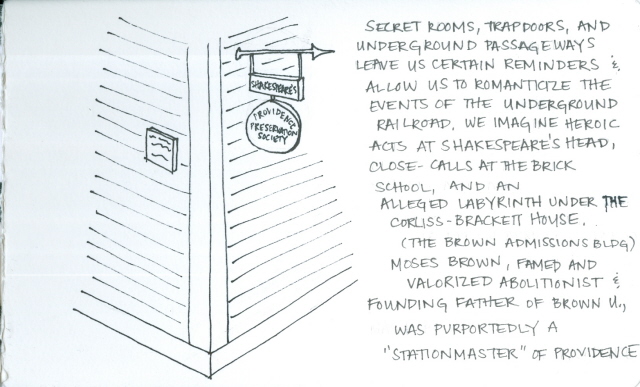 SHAKESPEARE'S
PROVIDENCE
PRESERVATION
SOCIETY
SECRET ROOMS, TRAPDOORS, AND
UNDERGROUND PASSAGEWAYS
LEAVE US CERTAIN REMINDERS &
ALLOW US TO ROMANTICIZE THE
EVENTS OF THE UNDERGROUND
RAILROAD. WE IMAGINE HEROIC
ACTS AT SHAKESPEARE'S HEAD,
CLOSE-CALLS AT THE BRICK
SCHOOL, AND AN
ALLEGED LABYRINTH UNDER THE
CORLISS-BRACKETT HOUSE.
(THE BROWN ADMISSIONS BLDG)
MOSES BROWN, FAMED AND
VALORIZED ABOLITIONIST &
FOUNDING FATHER OF BROWN U.,
WAS PURPORTEDLY A
"STATIONMASTER" OF PROVIDENCE